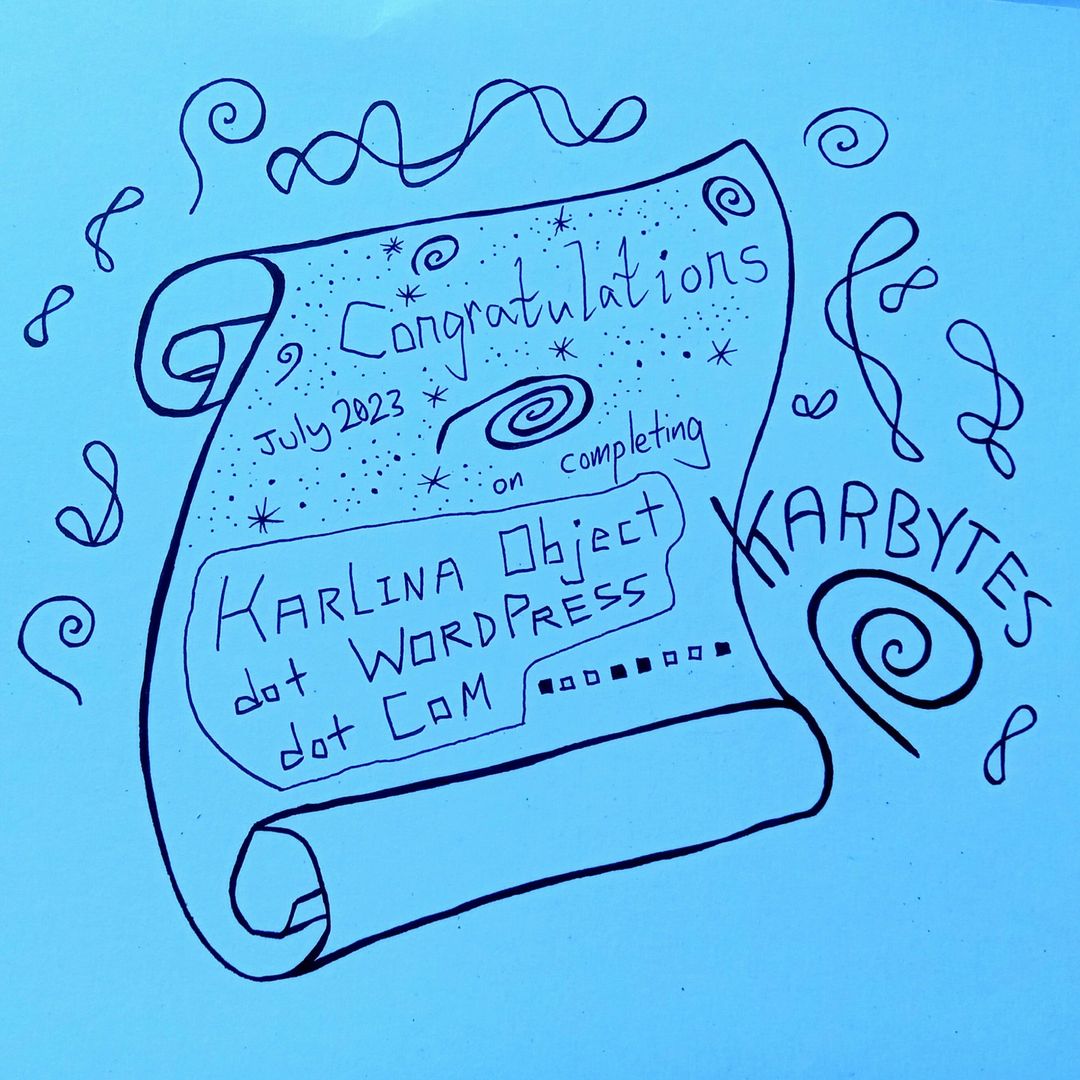 Congratulations
July 2023
on completing
KARLINA Object
dot WORDPRESS
dot COM
KARBYTES